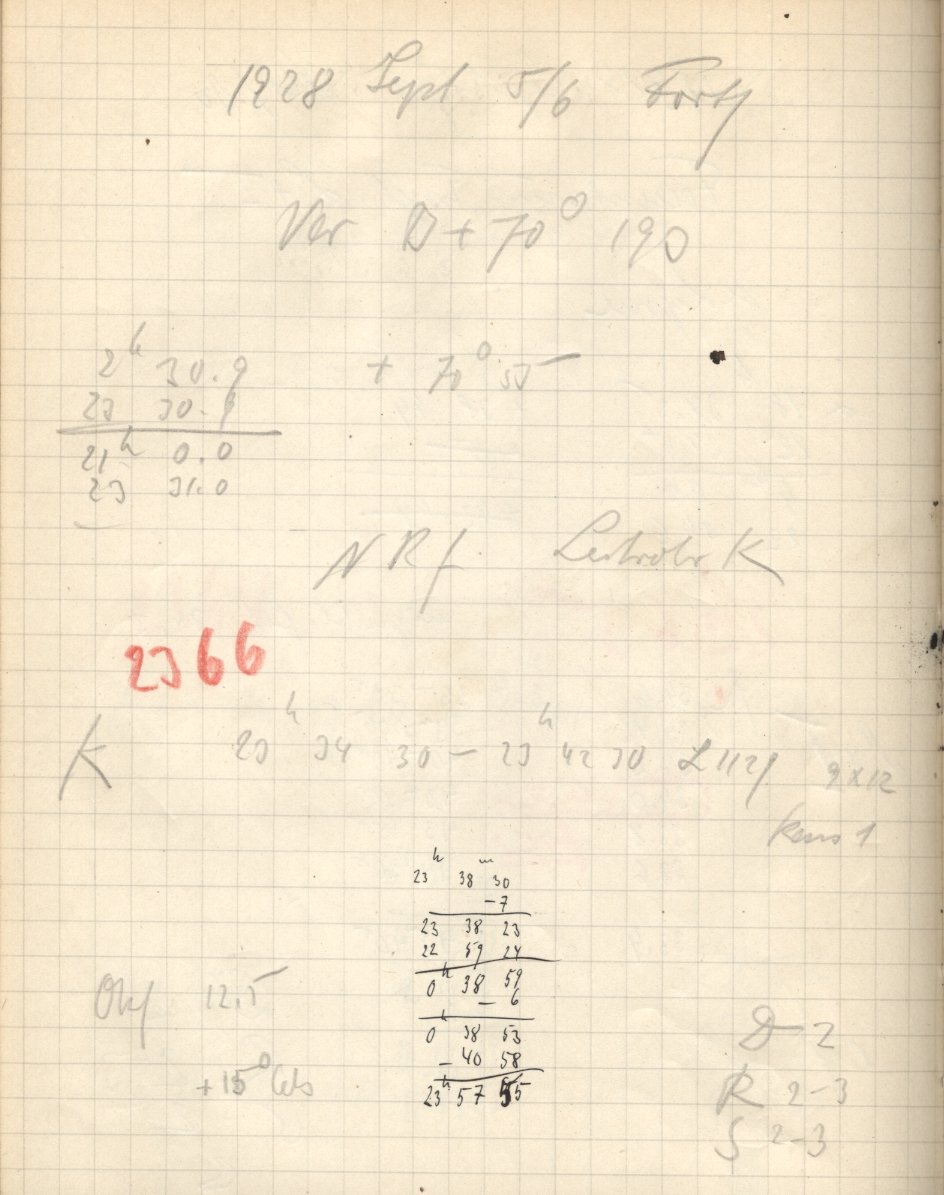 1928 Sept 5/6 Forts
Var D+70° 190
2ʰ 30.9 + 70° 55
23 30.9
21ʰ 0.0
23 31.0
NRf Leitrohr K
2366
K 23ʰ 34 30 – 23ʰ 42 30 9x12
23ʰ 38ᵐ 30
–7
23 38 23
22 59 24
0ʰ 38 59
– 6
0ʰ 38 53
– 40 58
23ʰ 57 55
Obj 12.5
+15° Cels
D 2
R 2-3
S 2-3